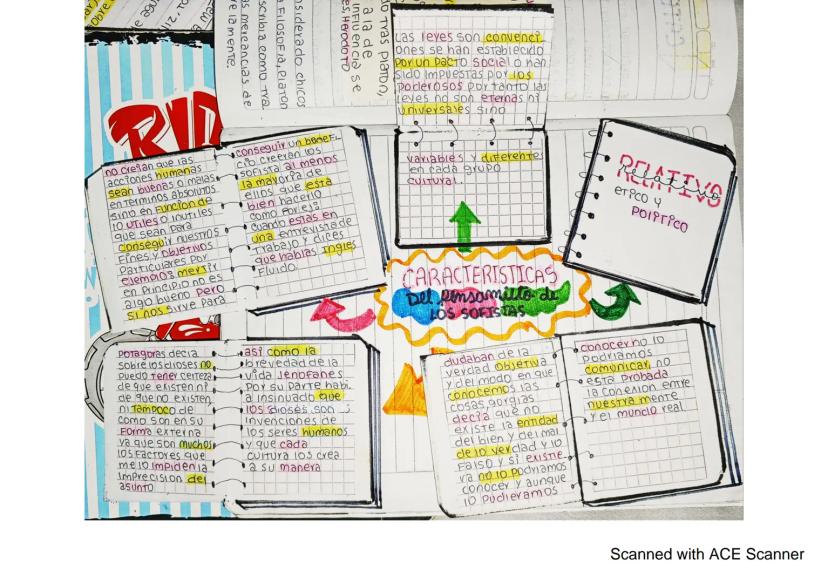 LAS leyes son convenci
ones se han establecido
por un pacto social o han
sido impuestas por los
poderosos por tanto las
leyes no son eternas ni
universales sino
variables y diferentes
en cada grupo
cultural.
RELATIVO
relativo
etico y
político
CARACTERISTICAS
Del pensamiento de
LOS SOFISTAS
no creian que las
acciones humanas
sean buenas o malas
en terminos absolutos
sino en funcion de
lo utiles o inutiles
que sean para
conseguir nuestros
fines y objetivos
particulares por
ejemplos mentir
en principio no es
algo bueno pero
si nos sirve para
conseguir un benefi
cio creerían los
sofista al menos
la mayoria de
ellos que esta
bien hacerlo
como por ej:
cuando estas en
una entrevista de
trabajo y dices
que hablas ingles
fluido.
potagoras decia
sobre los dioses no
puedo tener certeza
de que existen ni
de que no existen
ni tampoco de
como son en su
forma externa
ya que son muchos
los factores que
me lo impiden la
imprecision del
asunto
asi como la
brevedad de la
vida Jenofanes
por su parte habi
a insinuado que
los dioses son
invenciones de
los seres humanos
y que cada
cultura los crea
a su manera
dudaban de la
verdad objetiva
y del modo en que
conocemos las
cosas, gorgias
decia que no
existe la entidad
del bien y del mal
de lo verdad y lo
falso y si existe
ra no lo podriamos
conocer y aunque
lo pudieramos
conocer no lo
podriamos
comunicar no
esta probada
la conexion entre
nuestra mente
y el mundo real.
do tras platon,
a la de
influencia se
es, Herodoto
nsiderado chicos
a filosofia, platon
scribia como tra
as mercancias de
re la mente.
Scanned with ACE Scanner